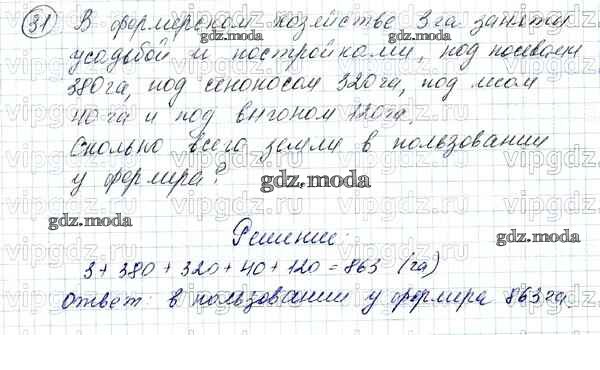 31 В фермерском хозяйстве 3 га заняты
усадьбой и постройками, под посевами
380 га, под сенокосом 320 га, под лесом
40 га и под выгоном 120 га.
Сколько всего земли в пользовании
у фермера?
Решение:
3 + 380 + 320 + 40 + 120 = 863 (га)
Ответ: в пользовании у фермера 863 га.
gdz.moda
gdz.moda
gdz.moda
gdz.moda
gdz.moda
gdz.moda
gdz.moda
vipgdz.ru